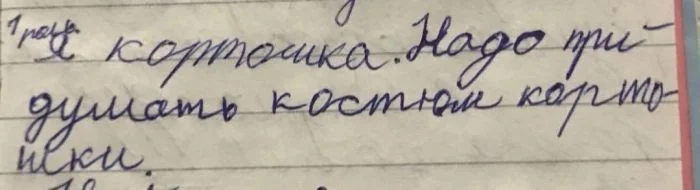 Я картошка. Надо при-
думать костюм карто-
шки.